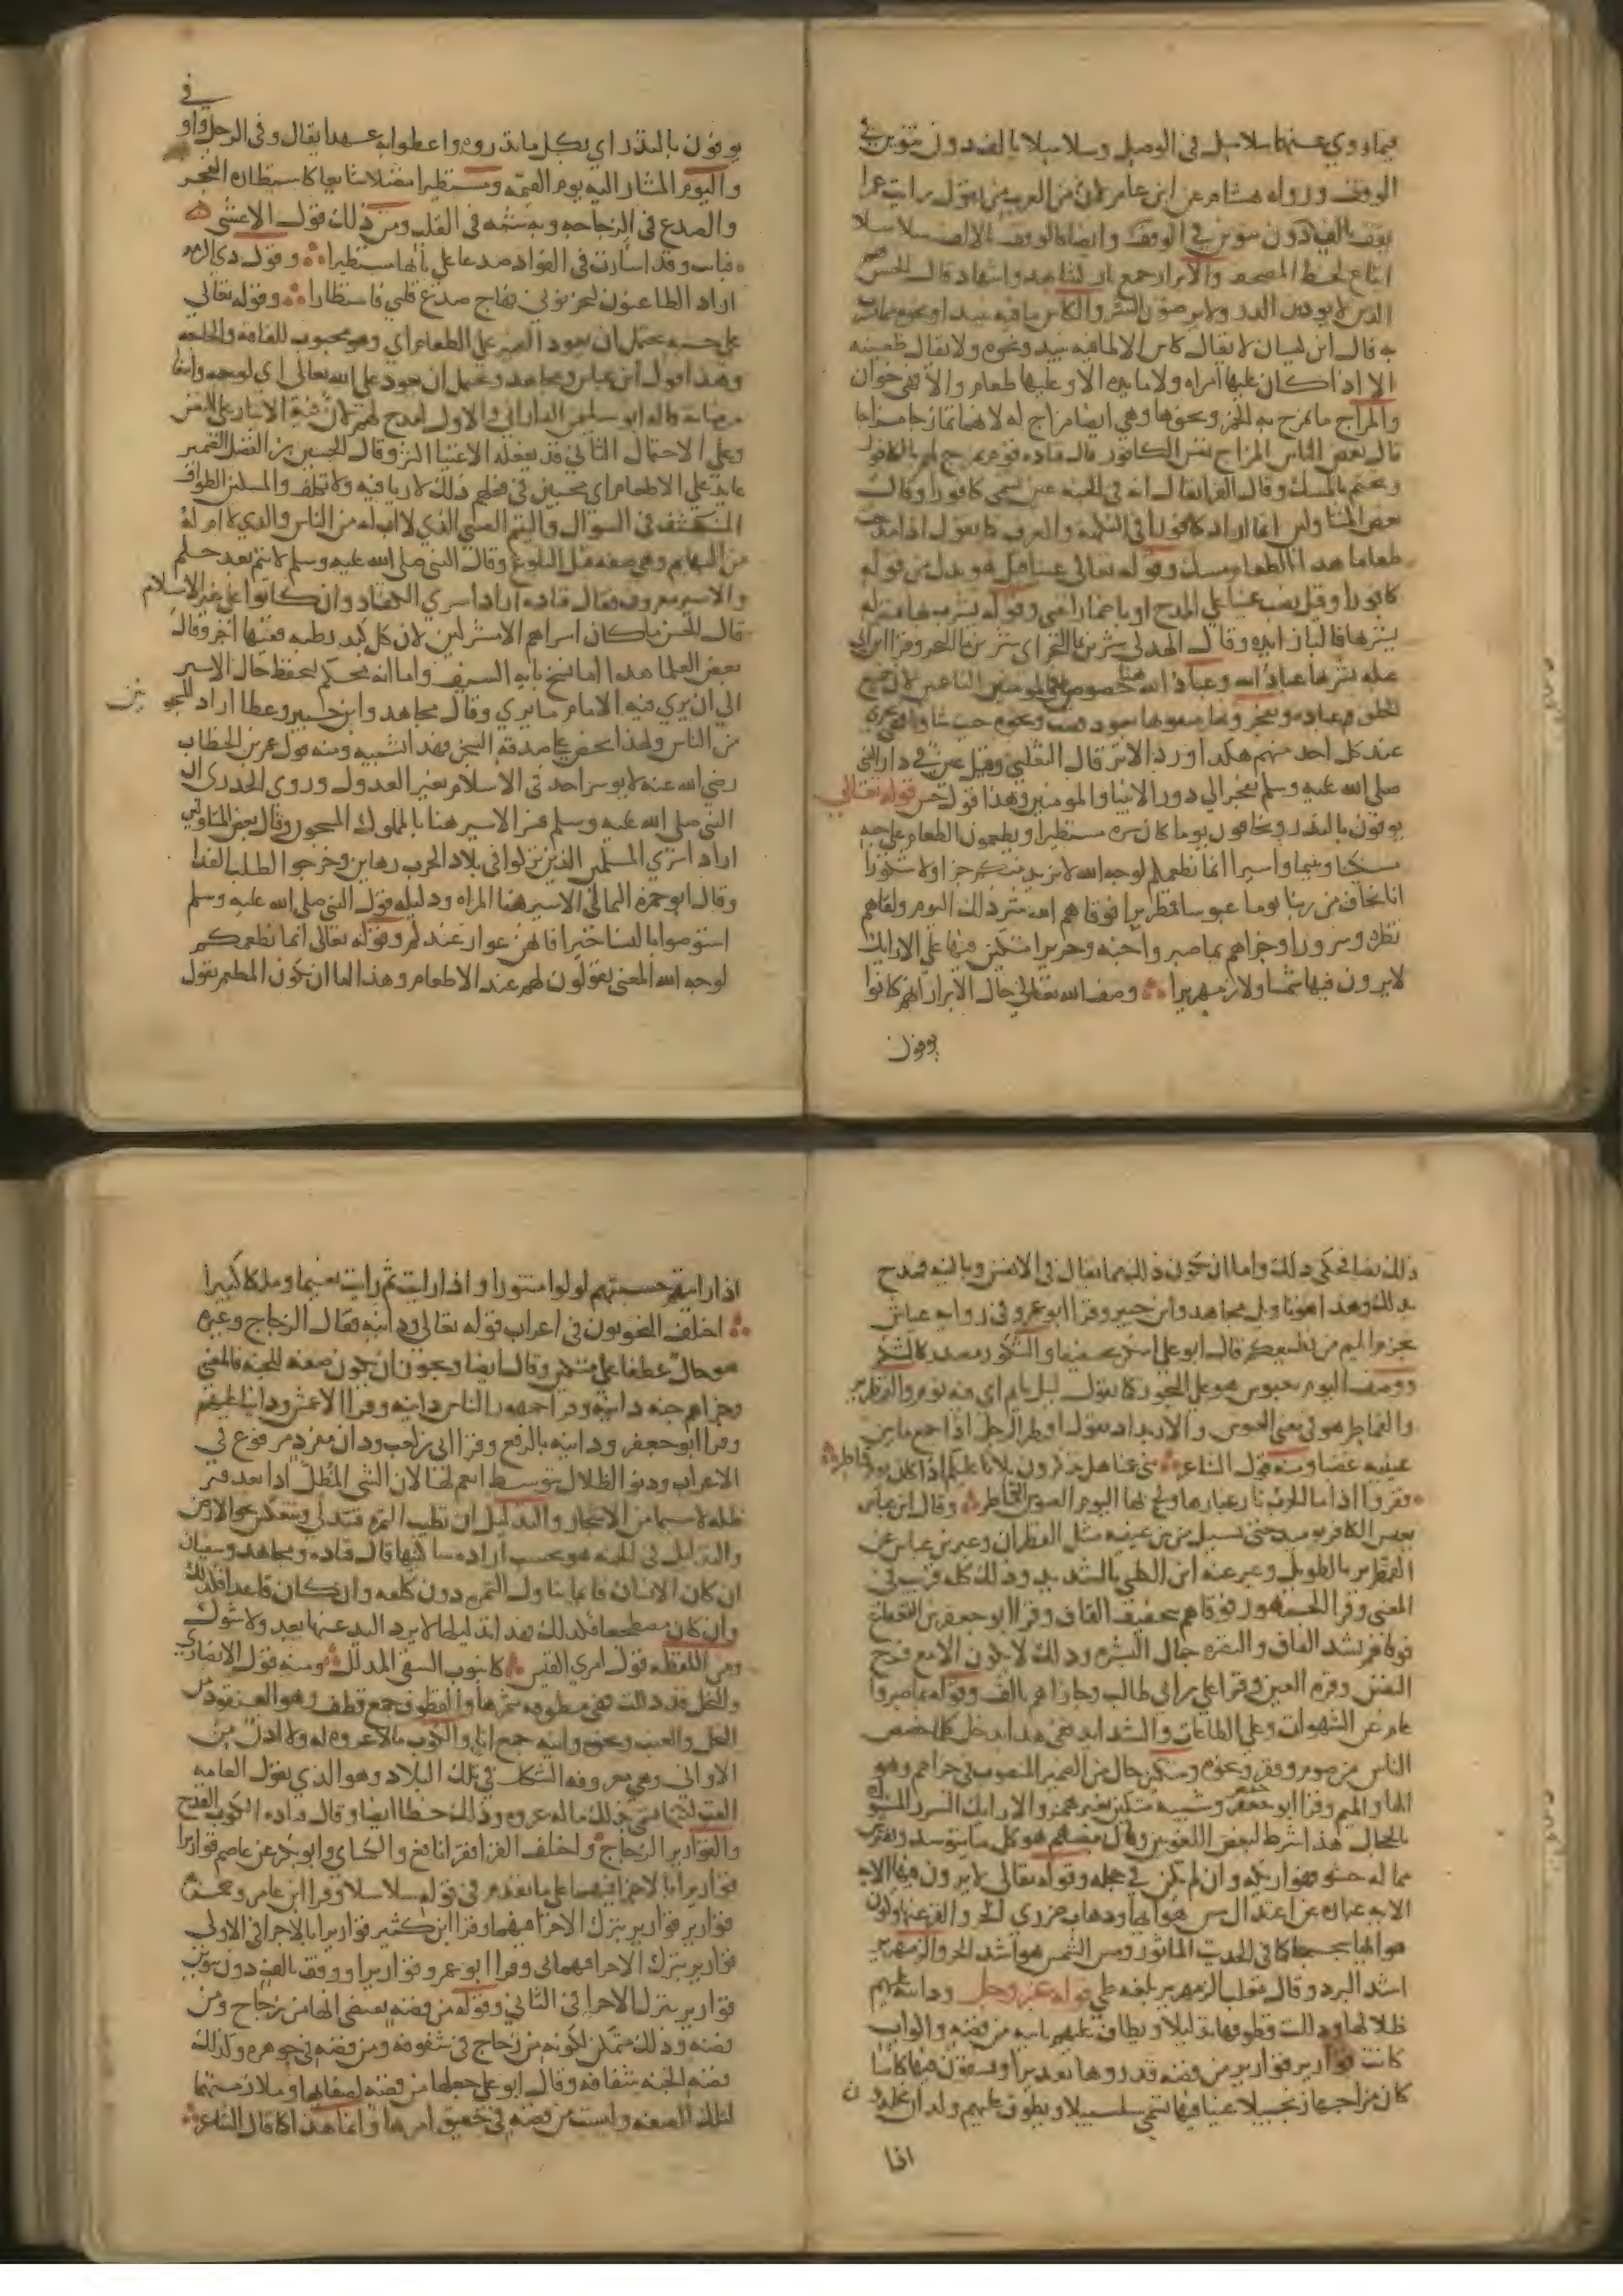 فيما روي عنهما سلاسل في الوصل وسلاسلا بالف دون تنوين في
الوقف ورواه هشام عن ابن عامر لان من العرب من يقول رايت عمرا
يقف بالف دون تنوين في الوقف وايضا فالوقف بالالف سلاسلا
اتباع لخط المصحف والابرار جمع بار كشاهد واشهاد قال الحسن هم
الذين لا يوذون الذر ولا يرضون الشر والكاس ما فيه نبيذ او نحوه مما يشرب
به قال ابن كيسان لا يقال كاس الا لما فيه نبيذ ونحوه ولا يقال ظعينة
الا اذا كان عليها امراه ولا مايده الا وعليها طعام والا فهي خوان
والمزاج ما يمزج به الخمر ونحوها وهي ايضا مزاج له لانهما تمازجا مزاجا
قال بعض الناس المزاج نفس الكافور قال قتاده قوم يمزج لهم بالكافور
ويختم بالمسك وقال الفرا يقال انه في الجنه عين تسمى كافورا وقالت
بعض المتاولين انما اراد كافورا في النكهه والعرف كما تقول اذا مدحت
طعاما هذا الطعام مسك وقوله تعالى عينا قيل هو بدل من قوله
كافورا وقيل نصب عينا على المدح او باضمار اعني وقوله يشرب بها بمنزلة
يشربها فالباء زايده وقال الهذلي شربن بماء البحر اي شربن ماء البحر وقرا ابن ابي
عبله يشربها عباد الله وعباد الله هنا خصوص في المومنين الناعمين لان جميع
الخلق عباده ويفجرونها معناه يشقونها بعود قصب ونحوه حيث شاوا فهي تجري
عند كل احد منهم هكذا ورد الاثر قال الثعلبي وقيل عين في دار النبي
صلى الله عليه وسلم تفجر الى دور الانبيا والمومنين وهذا قول حسن قوله تعالى
يوفون بالنذر ويخافون يوما كان شره مستطيرا ويطعمون الطعام على حبه
مسكينا ويتيما واسيرا انما نطعمكم لوجه الله لا نريد منكم جزا ولا شكورا
انا نخاف من ربنا يوما عبوسا قمطريرا فوقاهم الله شر ذلك اليوم ولقاهم
نضرة وسرورا وجزاهم بما صبروا جنه وحريرا متكئين فيها على الارايك
لا يرون فيها شمسا ولا زمهريرا وصف الله تعالى حال الابرار انهم كانوا
يوفون
في
يوفون بالنذر اي بكل ما نذروه واعطوا به عهدا يقال وفى الرجل واوفى
واليوم المشار اليه يوم القيمه ومستطيرا متصلا شايعا كاستطاره الفجر
والصدع في الزجاجه وبه شبه في القلب ومن ذلك قول الاعشى
فبانت وقد اسارت في الفواد صدعا على نايها مستطيرا وقول ذي الرمه
اراد الظاعنون ليحزنوني فهاج صدع قلبي فاستطارا وقوله تعالى
على حبه يحتمل ان يعود الضمير على الطعام اي وهو محبوب للفاقه والحاجه
وهذا قول ابن عباس ومجاهد ويحتمل ان يعود على الله تعالى اي لوجهه وابتغا
مرضاته قاله ابو سليمن الداراني والاول امدح لهم لان فيه الايثار على النفس
وعلى الاحتمال الثاني قد يفعله الاغنيا اكثر وقال الحسين بن الفضل الضمير
عايد على الاطعام اي محبين في فعلهم ذلك لا ريا فيه ولا تكلف والمسكين الطواف
المنكشف في السوال واليتيم الصبي الذي لا اب له من الناس والذي لا ام له
من البهايم وهي صفة قبل البلوغ وقال النبي صلى الله عليه وسلم لا يتم بعد حلم
والاسير معروف فقال قتاده اراد اسرى الكفار وان كانوا على غير الاسلام
قال الحسن ما كان اسراهم الا مشركين لان كل كبد رطبه ففيها اجر وقال
بعض العلما هذا اما نسخ بايه السيف واما انه محكم ليحفظ حال الاسير
الى ان يرى فيه الامام ما يرى وقال مجاهد وابن جبير وعطا اراد المسجونين
من الناس ولهذا يحض على صدقة السجن فهذا تشبيه ومنه قول عمر بن الخطاب
رضي الله عنه لا يوسر احد في الاسلام بغير العدول وروى الخدري ان
النبي صلى الله عليه وسلم فسر الاسير هنا بالمملوك والمسجون وقال بعض المتاولين
اراد اسرى المسلمين الذين نزلوا في بلاد الحرب رهاين وخرجوا لطلب الفدا
وقال ابو حمزه الثمالي الاسير هنا المراه ودليله قول النبي صلى الله عليه وسلم
استوصوا بالنسا خيرا فانهن عوار عندكم وقوله تعالى انما نطعمكم
لوجه الله المعنى يقولون لهم عند الاطعام وهذا اما ان يكون المطعم يقول
ذلك نصا فحكى ذلك واما ان يكون ذلك مما يقال في الانفس وبالنيه فمدح
بذلك وهذا هو تاويل مجاهد وابن جبير وقرا ابو عمرو في روايه عباس
بجزم الميم من نطعمكم قال ابو علي اسكن تخفيفا والشكور مصدر كالشكر
ووصف اليوم بعبوس هو على التجوز كما تقول ليل نايم اي فيه نوم والقمطرير
والقماطر هو في معنى العبوس والاربداد تقول اقمطر الرجل اذا جمع ما بين
عينيه غضبا ومنه قول الشاعر بني عمنا هل تذكرون بلانا عليكم اذا ما كان يوم قماطر
ففروا اذا ما الحرب ثار غبارها ولج بها اليوم العبوس القماطر وقال ابن عباس
يعبس الكافر يوميذ حتى يسيل من بين عينيه مثل القطران وعبر ابن عباس عن
القمطرير بالطويل وعبر عنه ابن الكلبي بالشديد وذلك كله قريب في
المعنى وقرا الجمهور فوقاهم بتخفيف القاف وقرا ابو جعفر بن القعقاع
فوقاهم بشد القاف والنضره جمال البشره وذلك لا يكون الا مع فرح
النفس وقره العين وقرا علي بن ابي طالب وجازاهم بالف وقوله بما صبروا
عام عن الشهوات وعلى الطاعات والشدايد ففي هذا يدخل كل ما خصص
الناس من صوم وفقر ونحوه ومتكئين حال من الضمير المنصوب في جزاهم وهو
الها والميم وقرا ابو جعفر وشيبه متكين بغير همز والارايك السرر المستوره
بالحجال هذا شرط لبعض اللغويين وقال بعضهم هو كل ما يتوسد ويفترش
مما له حشو فهو اريكه وان لم يكن في حجله وقوله تعالى لا يرون فيها الايه
الايه عباره عن اعتدال مس هوايها وذهاب ضرري الحر والقر عنها وكون
هوايها سجسجا كما في الحديث الماثور ومس الشمس هو اشد الحر والزمهرير
اشد البرد وقال ثعلب الزمهرير بلغه طي قوله عز وجل ودانية عليهم
ظلالها وذللت قطوفها تذليلا ويطاف عليهم بانيه من فضه واكواب
كانت قوارير قوارير من فضه قدروها تقديرا ويسقون فيها كاسا
كان مزاجها زنجبيلا عينا فيها تسمى سلسبيلا ويطوف عليهم ولدان مخلدون
اذا
اذا رايتهم حسبتهم لولوا منثورا واذا رايت ثم رايت نعيما وملكا كبيرا
اختلف النحويون في اعراب قوله تعالى ودانيه فقال الزجاج وغيره
هو حال عطفا على متكين وقال ايضا ويجوز ان يكون صفه للجنه فالمعنى
وجزاهم جنه دانيه وقرا جمهور الناس دانيه وقرا الاعمش ودانيا عليهم
وقرا ابو جعفر ودانيه بالرفع وقرا ابي بن كعب ودان مفرد مرفوع في
الاعراب ودنو الظلال بتوسط انعم لها لان الشي المظل اذا بعد فتر
ظله لا سيما من الاشجار والتذليل ان تطيب الثمره فتتدلى وتنعكس نحو الارض
والتذليل في الجنه هو بحسب اراده ساكنيها قال قتاده ومجاهد وسفيان
ان كان الانسان قايما تناول الثمر دون كلفه وان كان قاعدا فكذلك
وان كان مضطجعا فكذلك فهذا تذليلها لا يرد اليد عنها بعد ولا شوك
ومن اللفظه قول امرئ القيس كانبوب السقي المذلل ومنه قول الانصاري
والنخل قد ذللت فهي مطوقه بثمرها والقطوف جمع قطف وهو العنقود من
النخل والعنب ونحوه وانيه جمع انا والكوب ما لا عروه له ولا اذن من
الاواني وهي معروفه الشكل في تلك البلاد وهو الذي تقول العامه
القب لكنها تسمي بذلك ما له عروه وذلك خطا ايضا وقال قتاده الكوب القدح
والقوارير الزجاج واختلف القرا فقرا نافع والكساي وابو بكر عن عاصم قواريرا
قواريرا بالاجرا فيهما على ما تقدم في قوله سلاسلا وقرا ابن عامر وحمزه
قوارير قوارير بترك الاجرا فيهما وقرا ابن كثير قواريرا بالاجرا في الاولى
قوارير بترك الاجرا فيهما في وقرا ابو عمرو قواريرا ووقف بالف دون تنوين
قوارير بترك الاجرا في الثاني وقوله من فضه يقتضي انها من زجاج ومن
فضه وذلك متمكن لكونه من زجاج في شفوفه ومن فضه في جوهره وكذلك
فضه الجنه شفافه وقال ابو علي جعلها من فضه لصفايها وملازمتها
لتلك الصفه وليست من فضه في حقيق امرها وانما هذا كما قال الشاعر